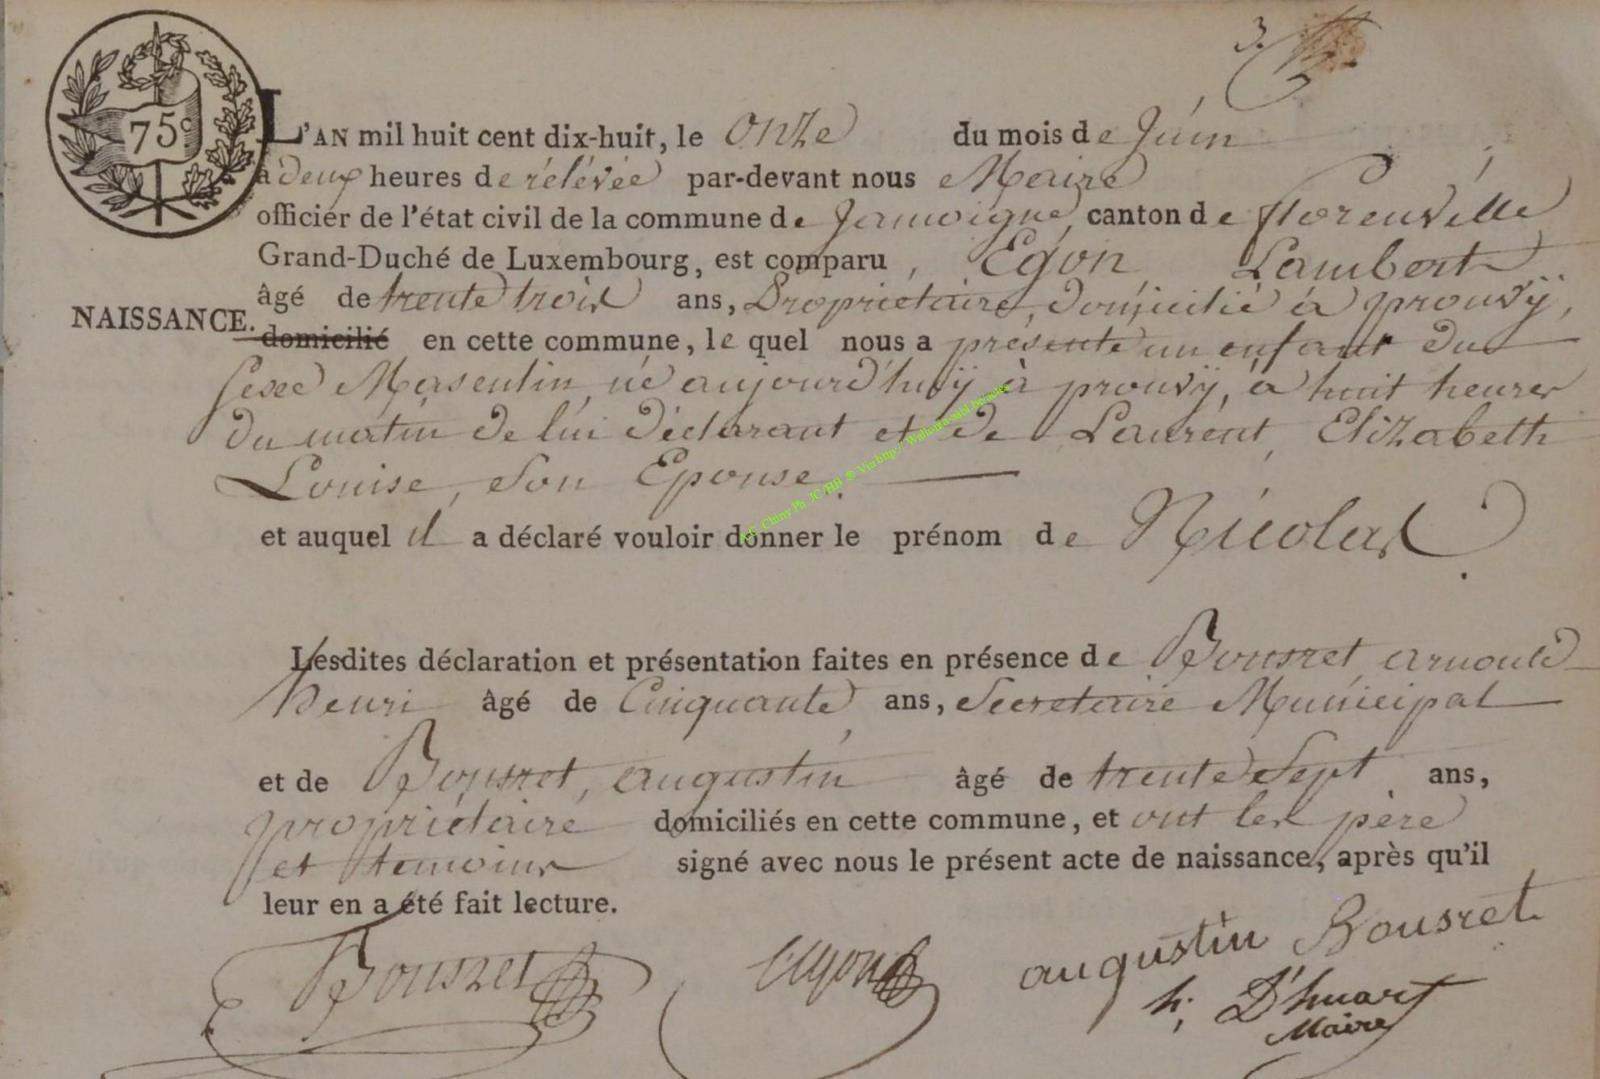 3.
75c
L'AN mil huit cent dix-huit, le onze du mois de juin
à deux heures de rélévée par-devant nous Maire
officier de l'état civil de la commune de Jamoigne, canton de florenville
Grand-Duché de Luxembourg, est comparu, Egon Lambert
âgé de trente trois ans, Propriétaire, domicilié à prouvÿ,
NAISSANCE.
domicilié en cette commune, le quel nous a présenté un enfant du
sexe Masculin, né aujourd'huÿ à prouvÿ, à huit heures
du matin de lui déclarant et de Laurent, Elizabeth
Louise, son Epouse.
et auquel il a déclaré vouloir donner le prénom de Nicolas.
Lesdites déclaration et présentation faites en présence de Bousret, arnould
henri âgé de Cinquante ans, Secretaire Municipal
et de Bousret, augustin âgé de trente Sept ans,
propriétaire domiciliés en cette commune, et ont les père
et temoins signé avec nous le présent acte de naissance, après qu'il
leur en a été fait lecture.
Bousret Egon augustin Bousret
h. D'huart
Maire